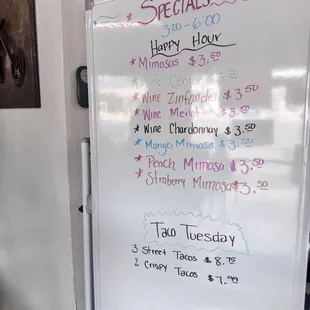 SPECIALS
3:00-6:00
Happy Hour
* Mimosas $3.50
* Wine Cooler $3.50
* Wine Zinfandel $3.50
* Wine Merlot $3.50
* Wine Chardonnay $3.50
* Mango Mimosa $3.50
* Peach Mimosa $3.50
* Stroberry Mimosa $3.50
Taco Tuesday
3 Street Tacos $8.75
2 Crispy Tacos $7.00